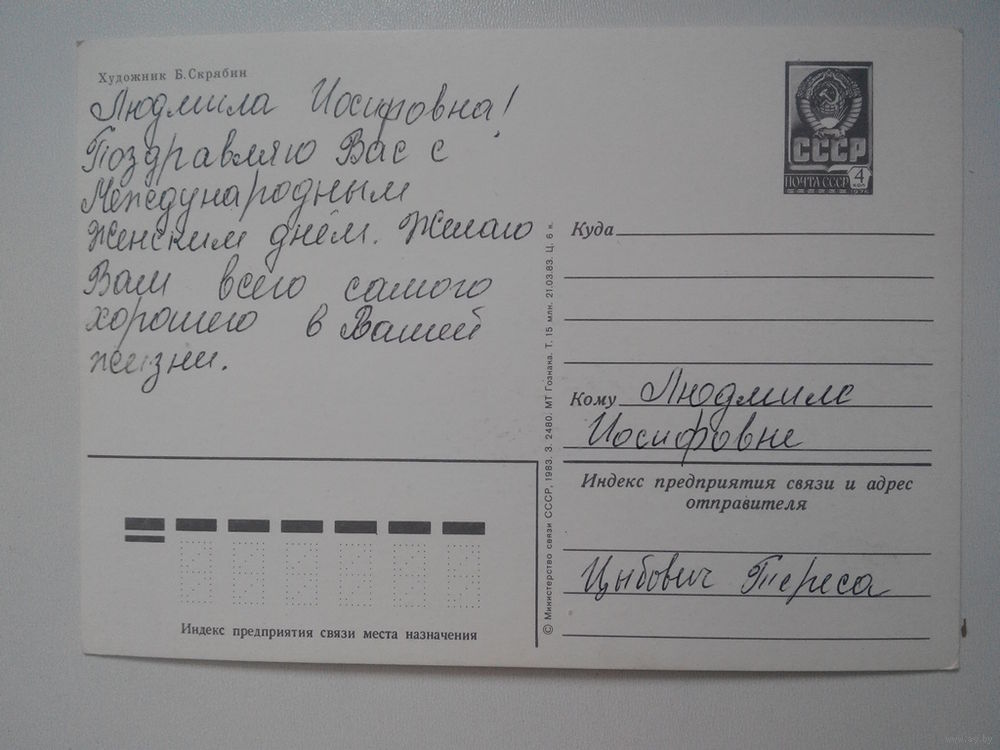 Художник Б. Скрябин
Людмила Иосифовна!
Поздравляю Вас с
Международным
Женским днём. Желаю
Вам всего самого
хорошего в Вашей
жизни.
СССР
ПОЧТА СССР
4
КОП
1976
Куда
Кому Людмиле
Иосифовне
Индекс предприятия связи и адрес
отправителя
Цыбович Тереса
Индекс предприятия связи места назначения
© Министерство связи СССР, 1983. З. 2480. МТ Гознака. Т. 15 млн. 21.03.83. Ц. 6 к.
www.ay.by